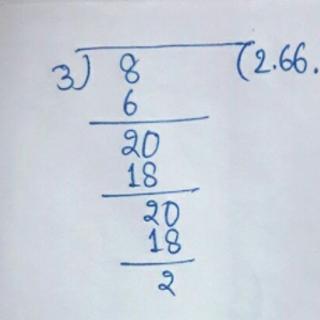 3) 8 (2.66.
6
20
18
20
18
2